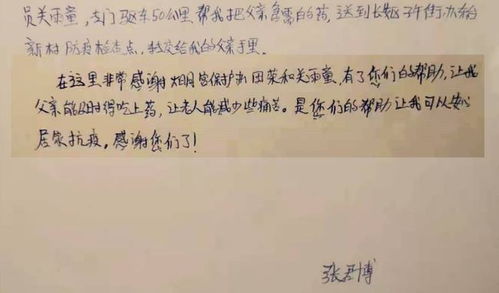 员关雨童，专门驱车50公里帮我把父亲急需的药，送到长安区子午街办
新村防疫检查点，转交给我的父亲手里。
在这里非常感谢 田荣和关雨童，有了您们的帮助，让我
父亲能及时得吃上药，让老人能减少些痛苦。是您们的帮助让我可以安心
居家抗疫。感谢您们了！
张
博